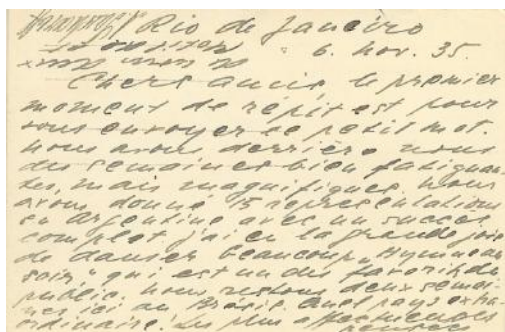 Rio de Janeiro
6. nov. 35.
Chers amis, le premier
moment de répit est pour
vous envoyer ce petit mot.
Nous avons derrière nous
des semaines bien fatiguan-
tes, mais magnifiques. Nous
avons donné 15 représentations
en Argentine avec un succès
complet. j'ai eu la grande joie
de danser beaucoup „Hymne au
soir" qui est un des favoris du
public. Nous restons deux semai-
nes ici au Brésil. Quel pays extra-
ordinaire! Les plus